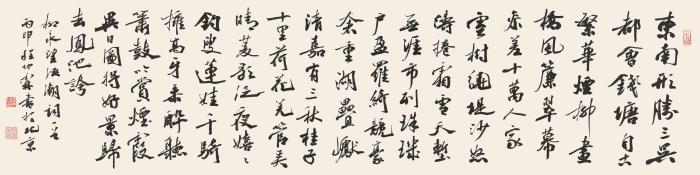 東南形勝三吳
都會錢塘自古
繁華煙柳畫
橋風簾翠幕
參差十萬人家
雲樹繞堤沙怒
濤捲霜雪天塹
無涯市列珠璣
戶盈羅綺競豪
奢重湖疊巘
清嘉有三秋桂子
十里荷花羌管弄
晴菱歌泛夜嬉〻
釣叟蓮娃千騎
擁高牙乘醉聽
簫鼓吟賞煙霞
異日圖將好景歸
去鳳池誇
柳永望海潮詞一首
丙申 書於北京